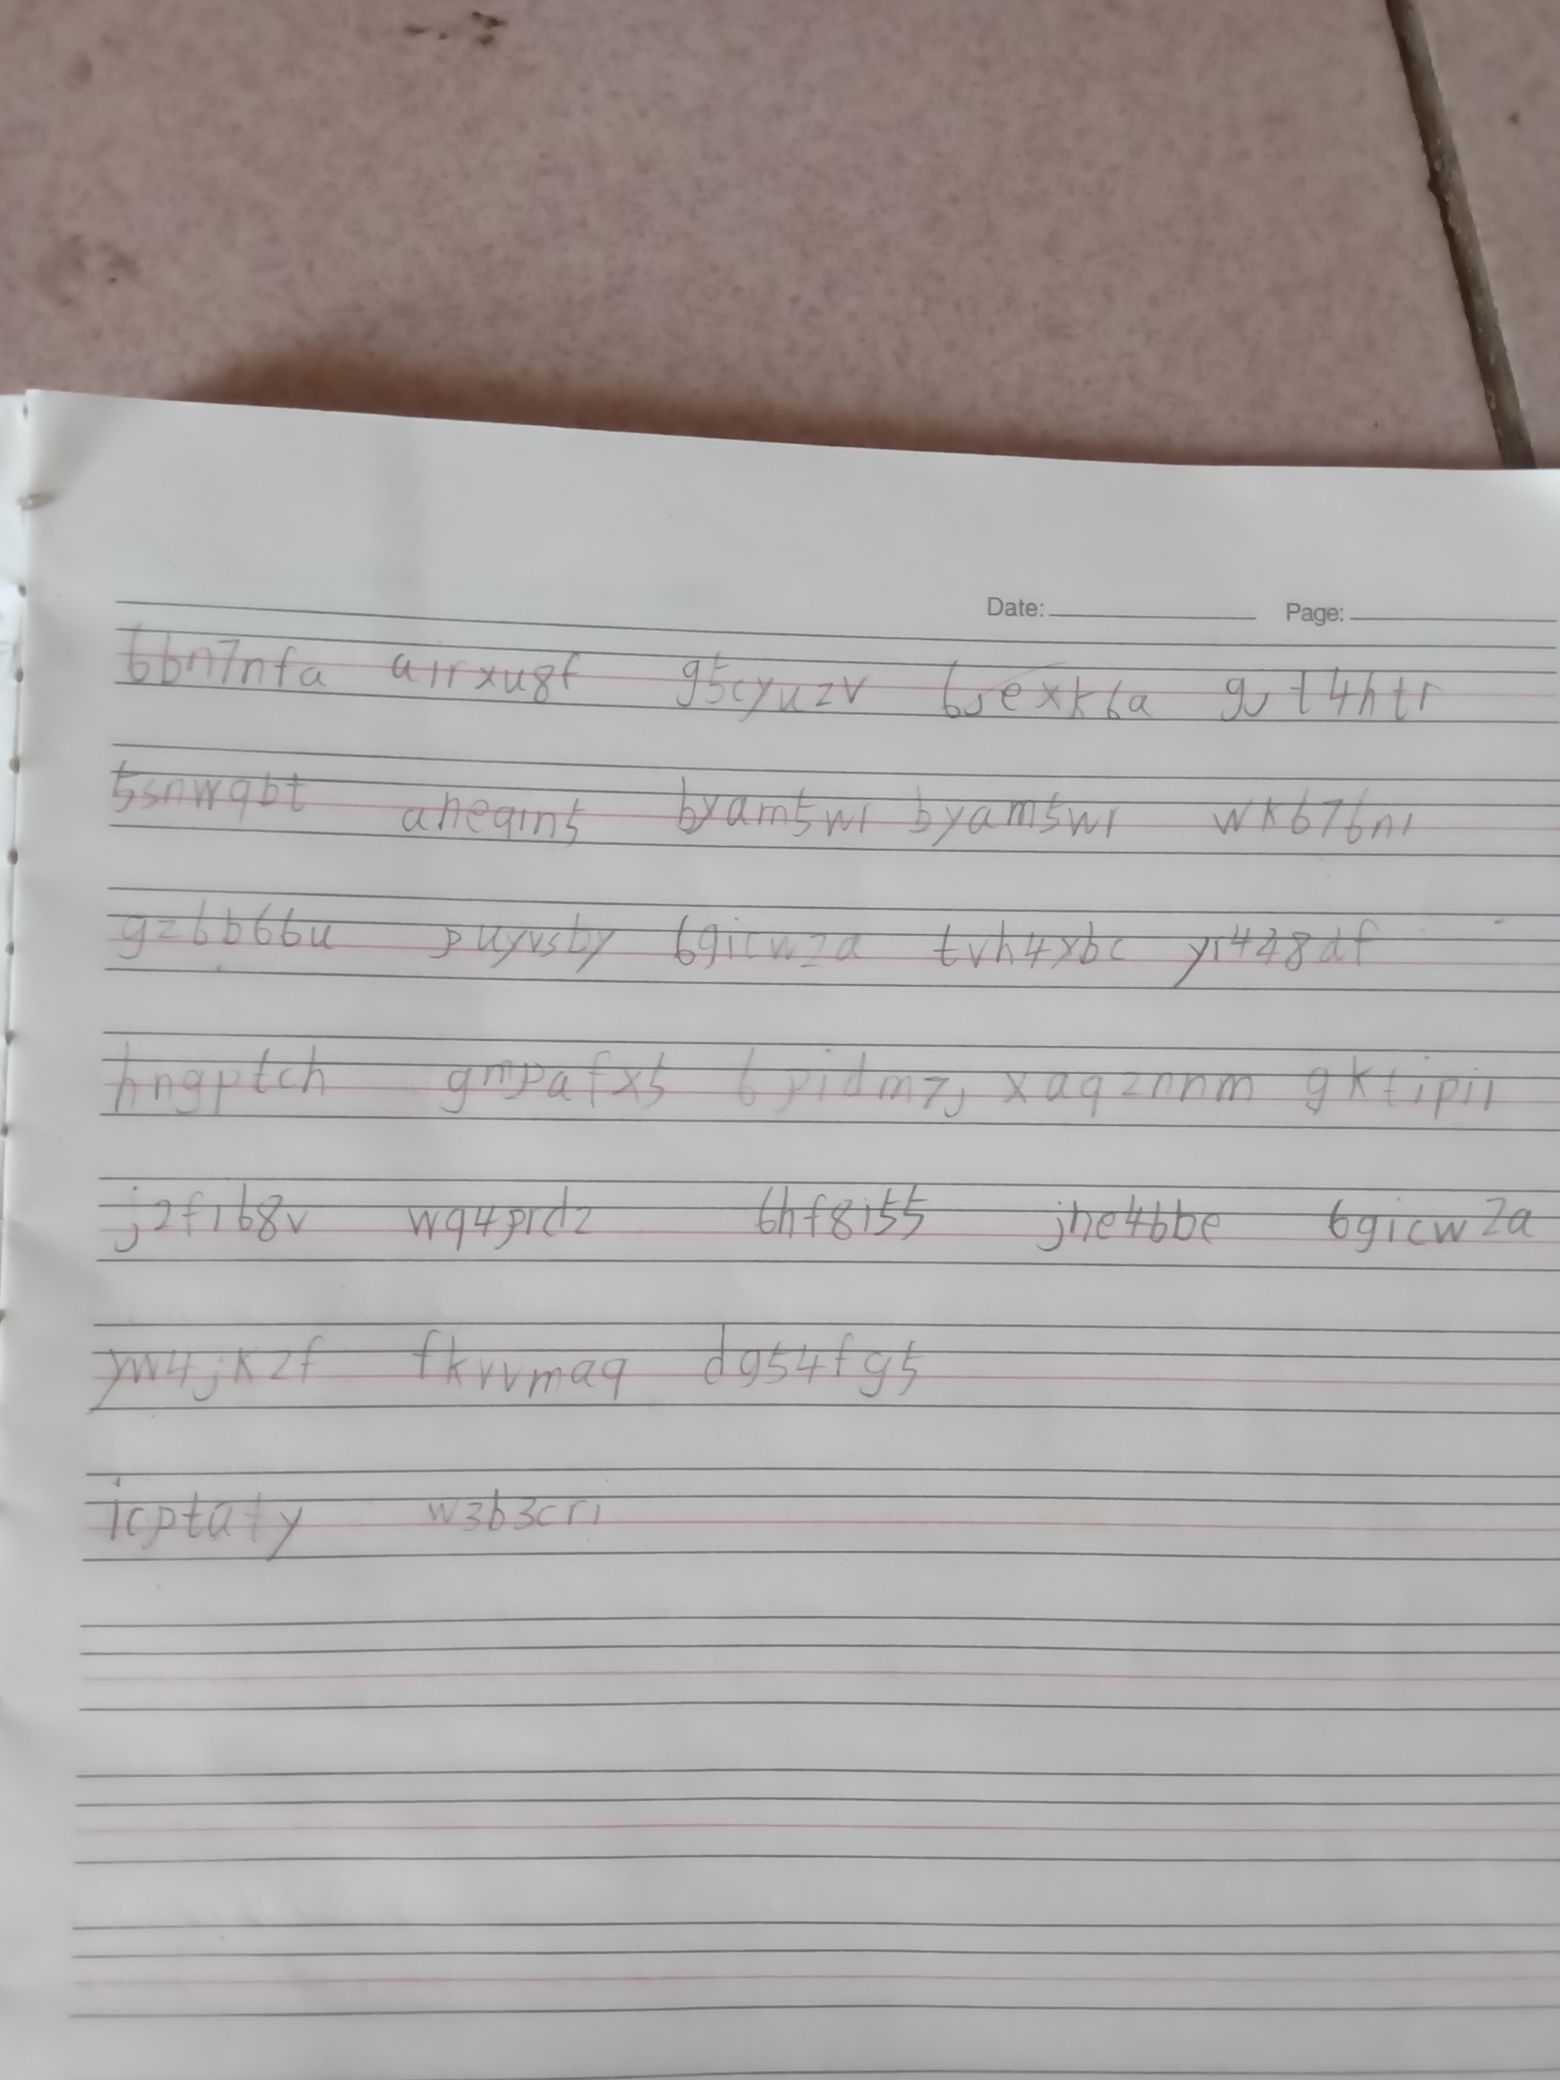 Date: Page:
6bn7nfa a1rxu8f g5cyuzv 6sexk6a gvt4htr
5snwqbt aheqin5 byam5w1 byam5w1 wk676n1
gz6b66u puyvsby 6gicwza tvh4xbc yr448df
hngptch gmpafx5 6pidm7j xaqznnm gktipi1
j2f1b8v wq4prdz 6hf8i55 jhe46be 6gicwza
yw4jkzf fkvvmaq dg54fg5
icptaty w3b3cri